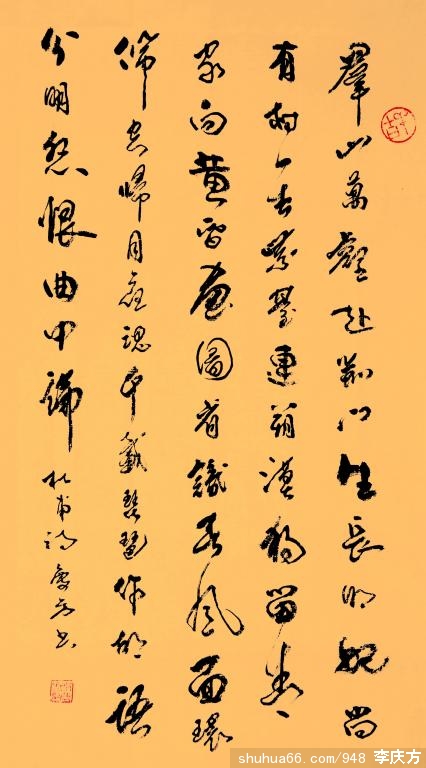 羣山萬壑赴荊門生長明妃尚
有村一去紫臺連朔漠獨留青
冢向黃昏畫圖省識春風面環
佩空歸月夜魂千載琵琶作胡語
分明怨恨曲中論 杜甫詩 慶方書
shuhua66.com/948 李庆方